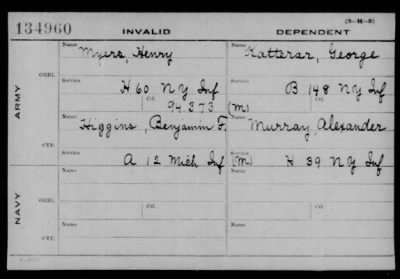 134960 INVALID DEPENDENT (3-16-5)
Name Myers, Henry Name Katterar, George
ARMY ORIG. Service H 60 NY Inf Service B 148 NY Inf
Ctf. 94373 Ctf. (M)
Name Higgins, Benjamin F. Name Murray, Alexander
CTF. Service A 12 Mich Inf Service (M) H 39 NY Inf
NAVY ORIG. Name Ctf. Name Ctf.
CTF. Name Name